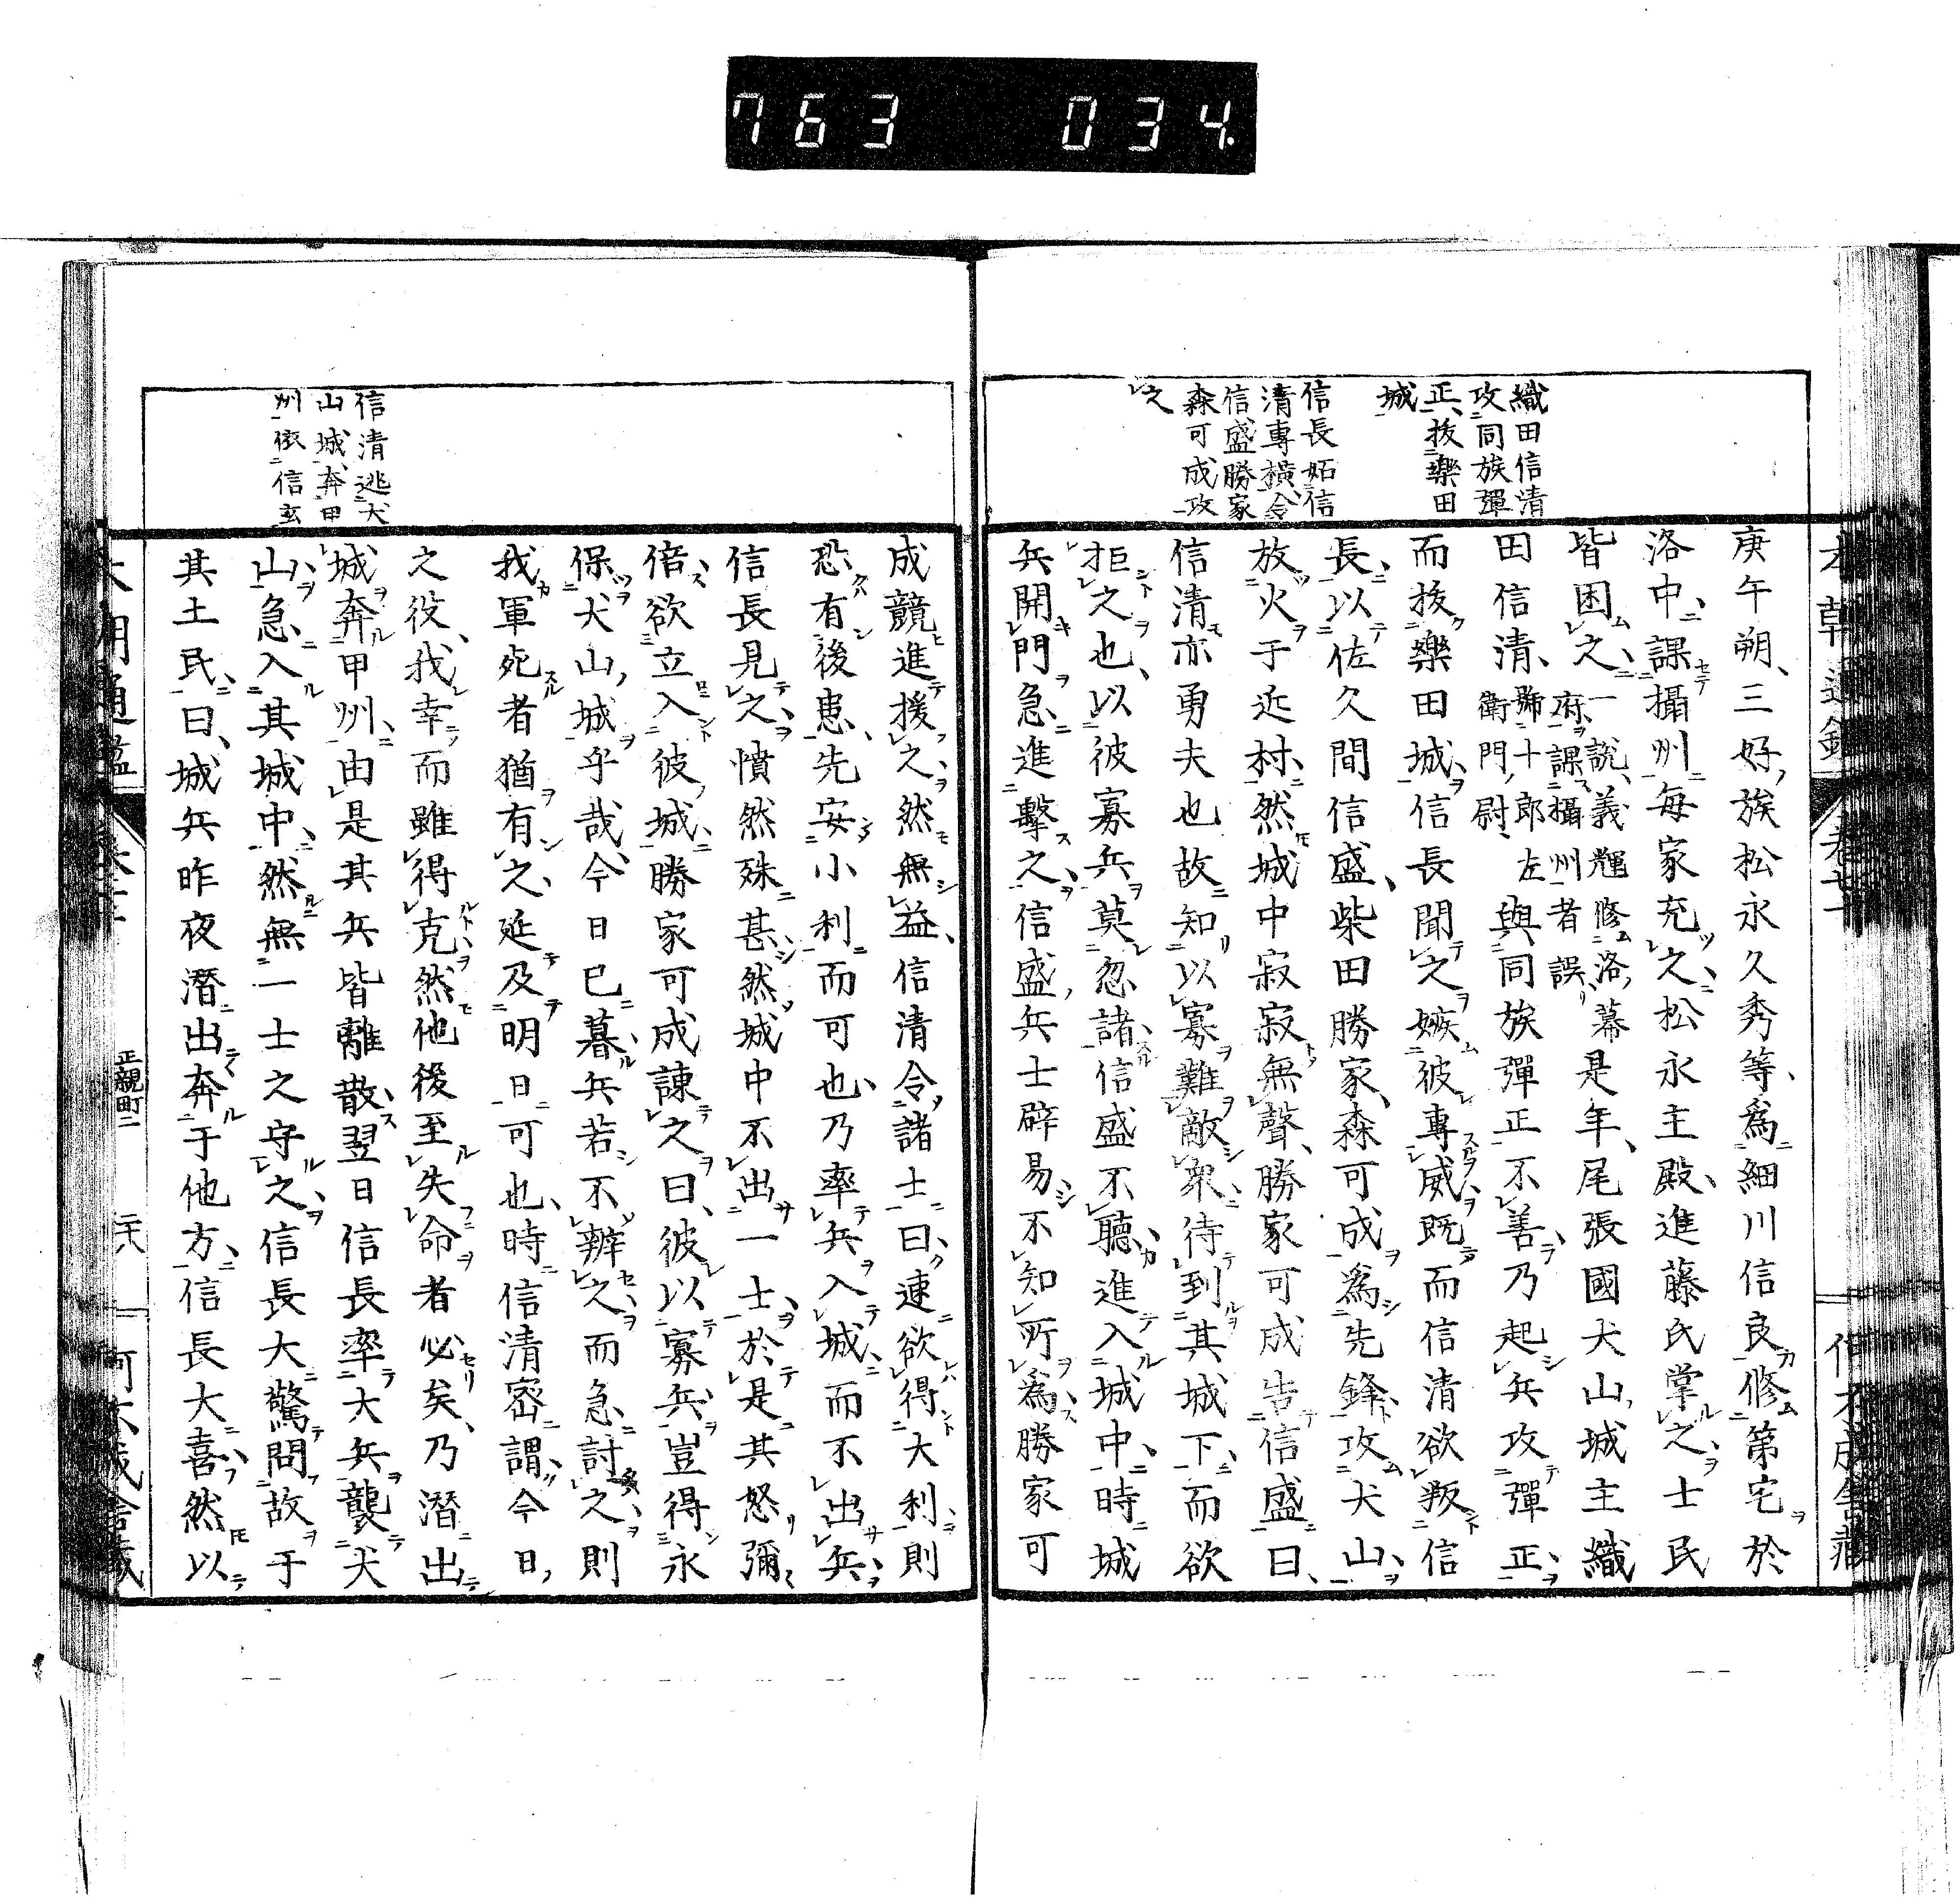 763 034
織田信清
攻同族彈
正、拔樂田
城
信長妬信
清專横、令
信盛勝家
森可成攻
之
庚午朔、三好族松永久秀等、爲細川信良修第宅於
洛中、課攝州毎家充之、松永主殿、進藤氏掌之、士民
皆困之、一説、義輝修洛幕府、課攝州者誤是年、尾張國犬山城主織
田信清、號十郎左衛門尉、與同族彈正不善、乃起兵攻彈正、
而拔樂田城、信長聞之嫉彼專威、既而信清欲叛信
長、以佐久間信盛、柴田勝家、森可成爲先鋒、攻犬山、
放火于近村、然城中寂寂無聲、勝家可成告信盛曰、
信清亦勇夫也、故知以寡難敵衆、待到其城下、而欲
拒之也、以彼寡兵、莫忽諸、信盛不聽、進入城中、時城
兵開門急進擊之、信盛兵士辟易不知所爲、勝家可
信清逃犬
山城、奔甲
州依信玄
成競進援之、然無益、信清令諸士曰、速欲得大利、則
恐有後患、先安小利而可也、乃率兵入城、而不出兵、
信長見之、憤然殊甚、然城中不出一士、於是其怒彌
倍、欲立入彼城、勝家可成諫之曰、彼以寡兵、豈得永
保犬山城乎哉、今日已暮、兵若不辨之、而急討之、則
我軍死者猶有之、延及明日可也、時信清密謂、今日
之役、我幸而雖得克、然他後至失命者必矣、乃潛出
城奔甲州、由是其兵皆離散、翌日信長率大兵襲犬
山、急入其城中、然無一士之守之、信長大驚問故于
其土民、曰、城兵昨夜潛出奔于他方、信長大喜、然以
正親町二
二十八